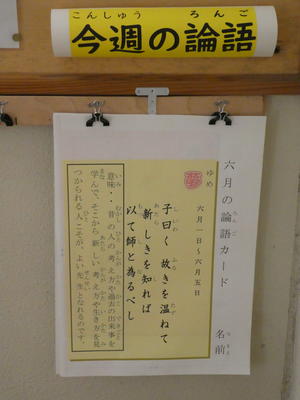 こんしゅう ろんご
今週の論語
六月の論語カード 名前
六月一日～六月五日
ゆめ
子曰く 故きを温ねて
新しきを知れば
以て師と為るべし
意味・・昔の人の考え方や過去の出来事を
学んで、そこから新しい考え方や生き方を見
つけられる人こそが、よい先生となれるのです。